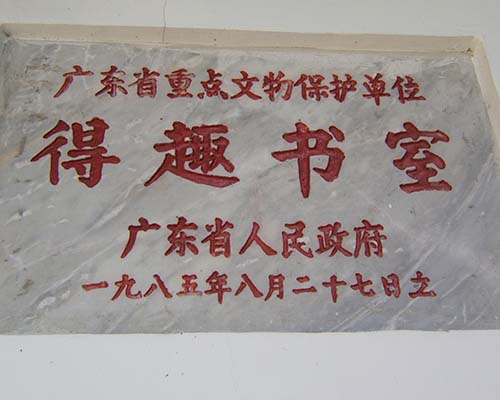 广东省重点文物保护单位
得趣书室
广东省人民政府
一九八五年八月二十七日立